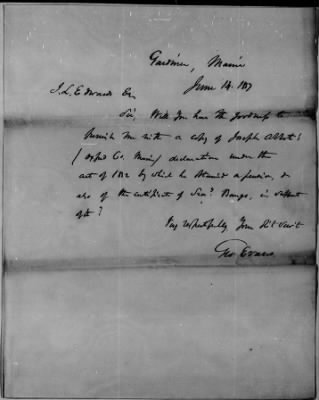 Gardiner, Maine
June 14. 187
J. L. Edwards Esq
Sir, Will you have the goodness to
furnish me with a copy of Joseph Abbot's
(Oxford Co. Maine) declaration under the
act of 1832 by which he obtained a pension, &
also of the certificate of Bangs, in support
of it?
Very respectfully Your Obt Servt
Geo Evans